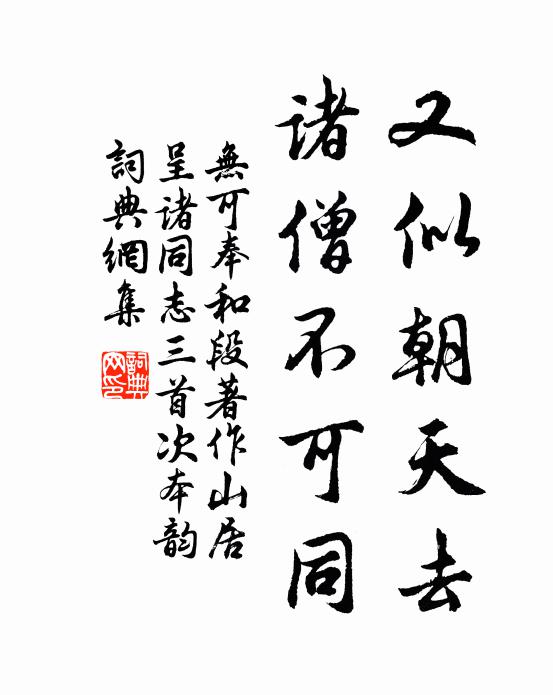 又似朝天去
諸僧不可同
無可奉和段著作山居
呈諸同志三首次本韵
詞典網集
詞典
网印